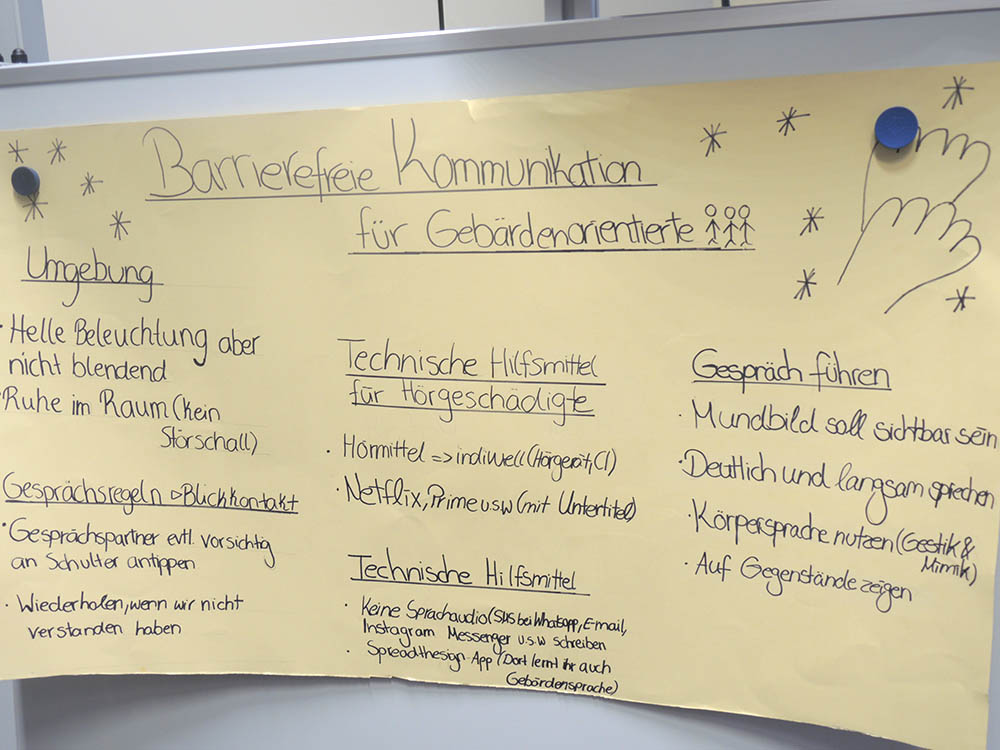 Barrierefreie Kommunikation
für Gebärdenorientierte
Umgebung
· Helle Beleuchtung aber
nicht blendend
· Ruhe im Raum (kein
Störschall)
Gesprächsregeln ▷Blickkontakt
· Gesprächspartner evtl. vorsichtig
an Schulter antippen
· Wiederholen, wenn wir nicht
verstanden haben
Technische Hilfsmittel
für Hörgeschädigte
· Hörmittel => indiwell (Hörgerät, CI)
· Netflix, Prime u.s.w (mit Untertitel)
Technische Hilfsmittel
· Keine Sprachaudio (SMS bei Whatsapp, E-mail,
Instagram Messenger u.s.w schreiben
· Spreadthesign App (Dort lernt ihr auch
Gebärdensprache)
Gespräch führen
· Mundbild soll sichtbar sein
· Deutlich und langsam sprechen
· Körpersprache nutzen (Gestik &
Mimik)
· Auf Gegenstände zeigen